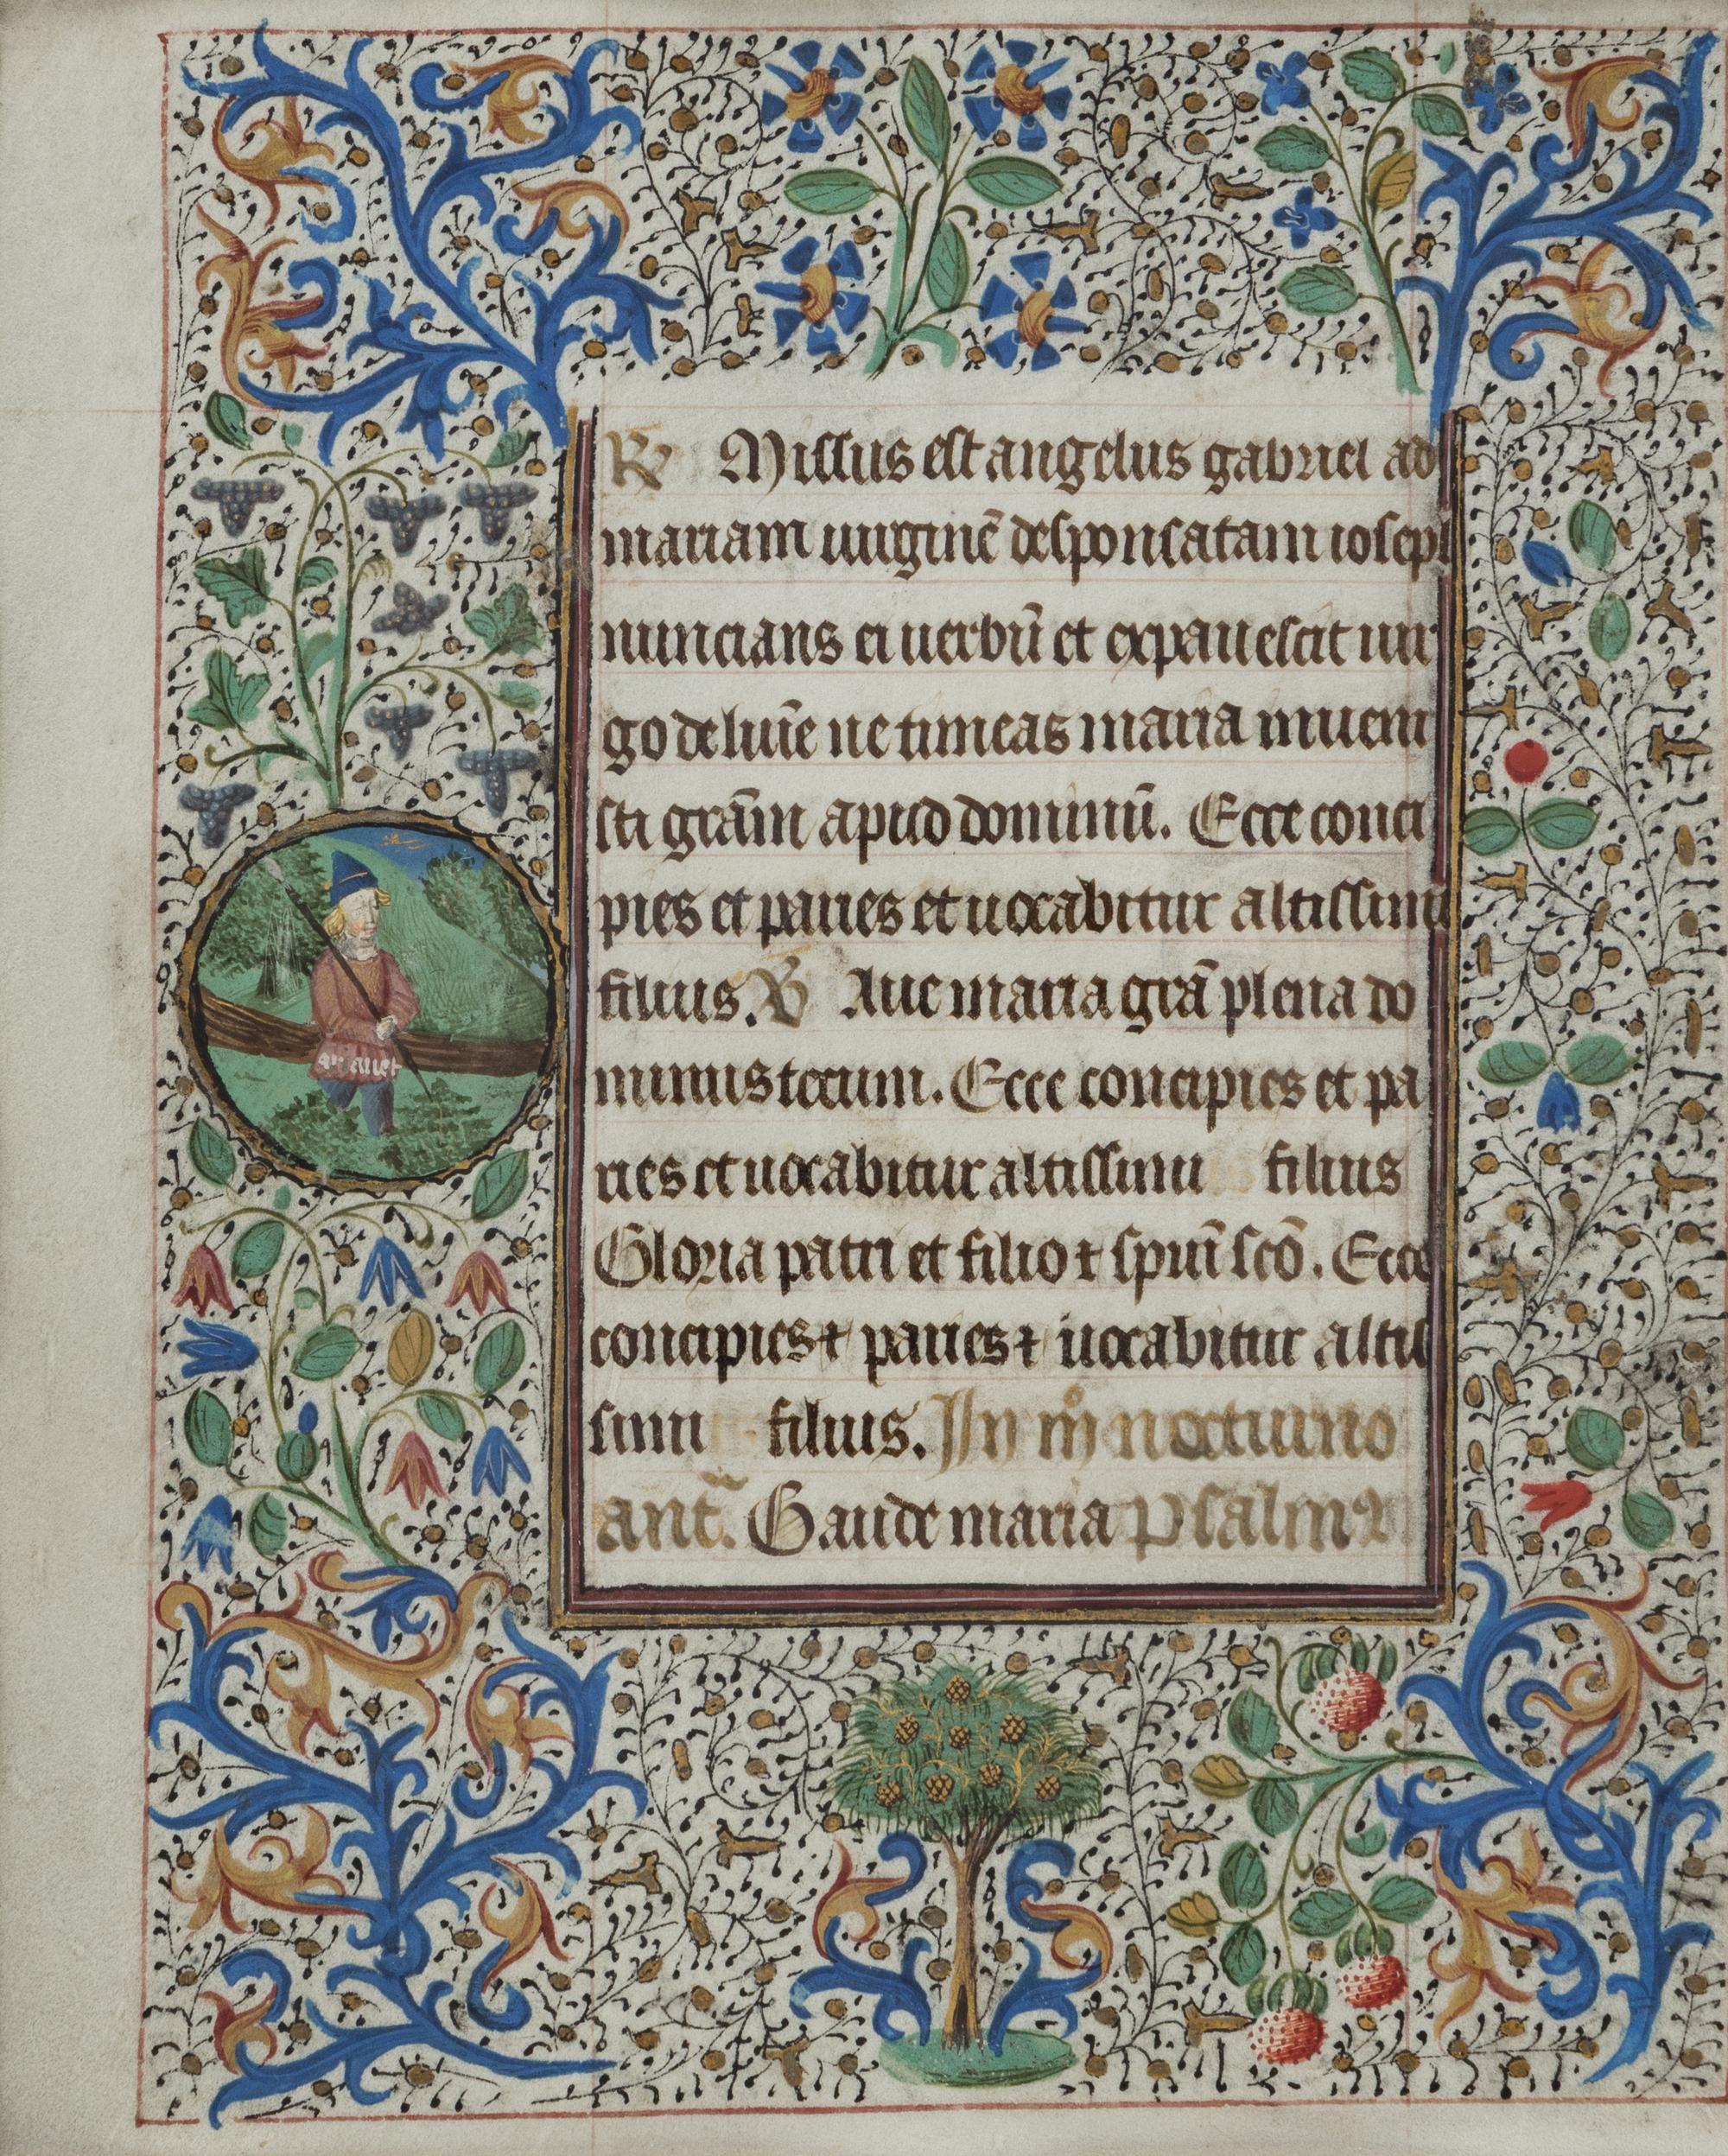 ℟ Missus est angelus gabriel ad
mariam uirginē desponsatam ioseph
nuncians ei uerbū et expauescit uir
go de lumīe ne timeas maria inueni
sti grām apud dominū. Ecce conci
pies et paries et uocabitur altissimi
filius. ℣ Aue maria grā plena do
minus tecum. Ecce concipies et pa
ries et uocabitur altissimi filius
Gloria patri et filio ⁊ spūi scō. Ecce
concipies ⁊ paries ⁊ uocabitur altis
simi filius. In nocturno
ant. Gaude maria Psalmꝰ